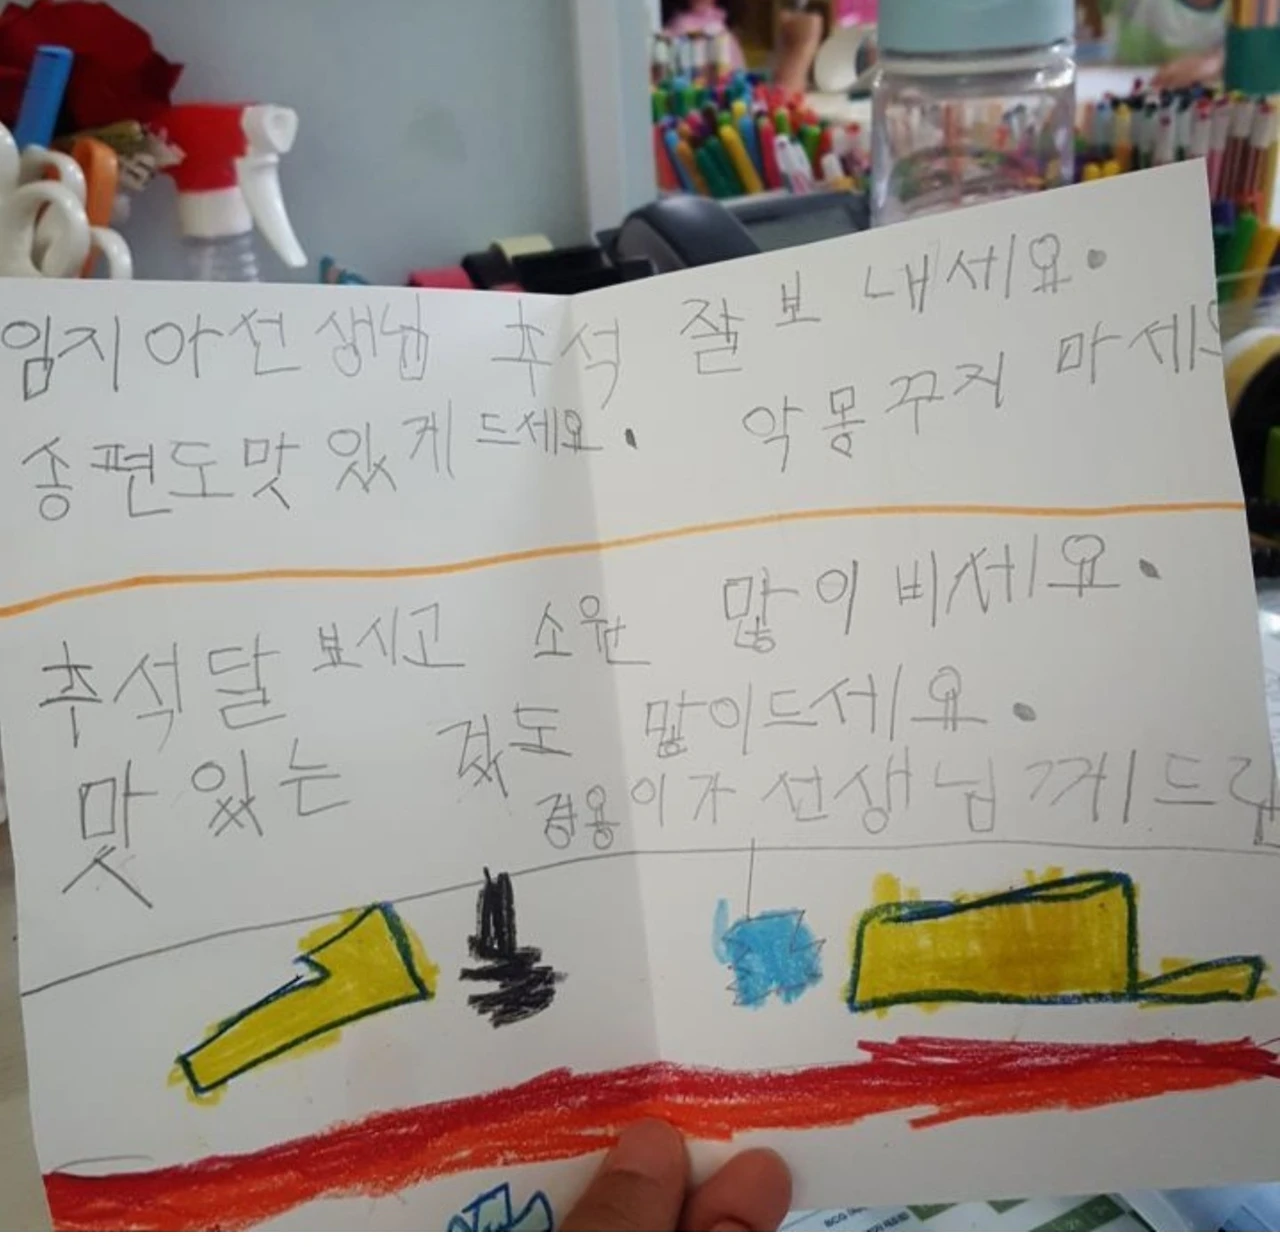 임지아선생님 추석 잘보내세요.
송편도맛있게드세요. 악몽꾸지 마세요
추석달 보시고 소원 많이 비세요.
맛있는 것도 많이드세요.
경용이가 선생님께드림